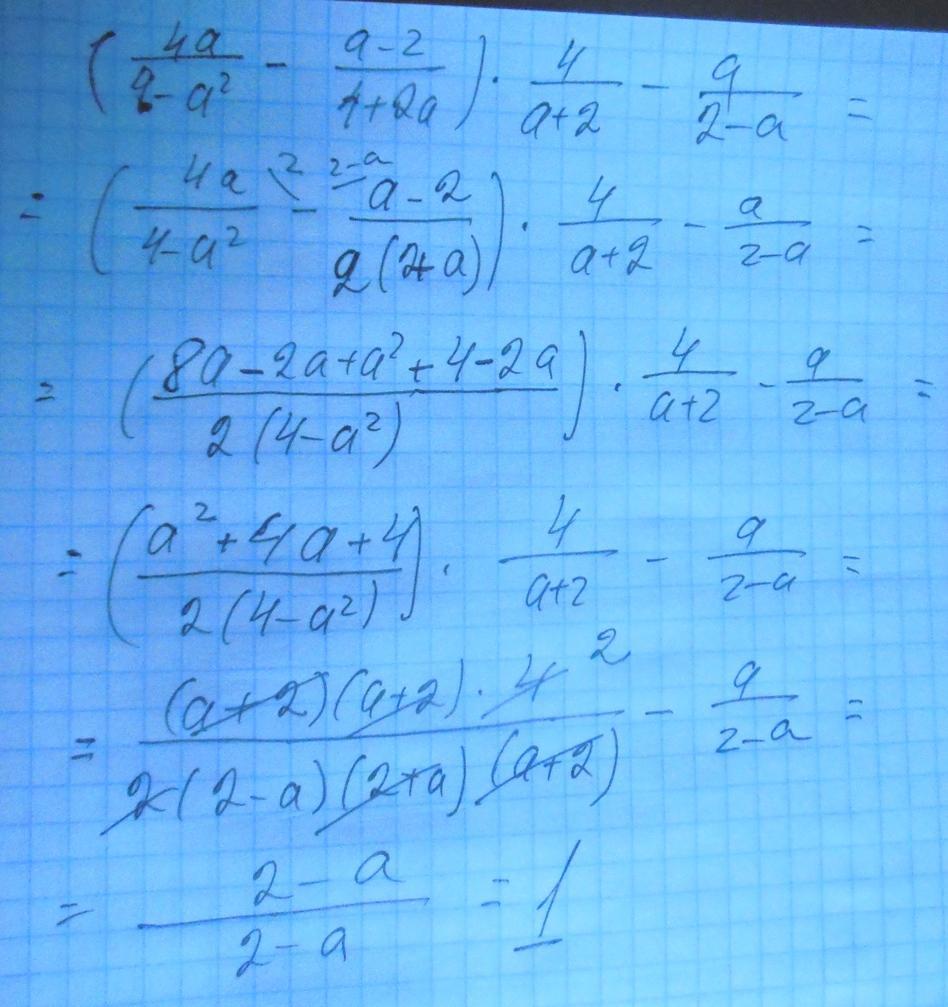 (4a/4-a² - a-2/4+2a) · 4/a+2 - a/2-a =
= (4a\²/4-a² - 2-a/ a-2/2(2+a)) · 4/a+2 - a/2-a =
= (8a-2a+a²+4-2a/2(4-a²)) · 4/a+2 - a/2-a =
= (a²+4a+4/2(4-a²)) · 4/a+2 - a/2-a =
= (a+2)(a+2)·4 2/2(2-a)(2+a)(a+2) - a/2-a =
= 2-a/2-a = 1